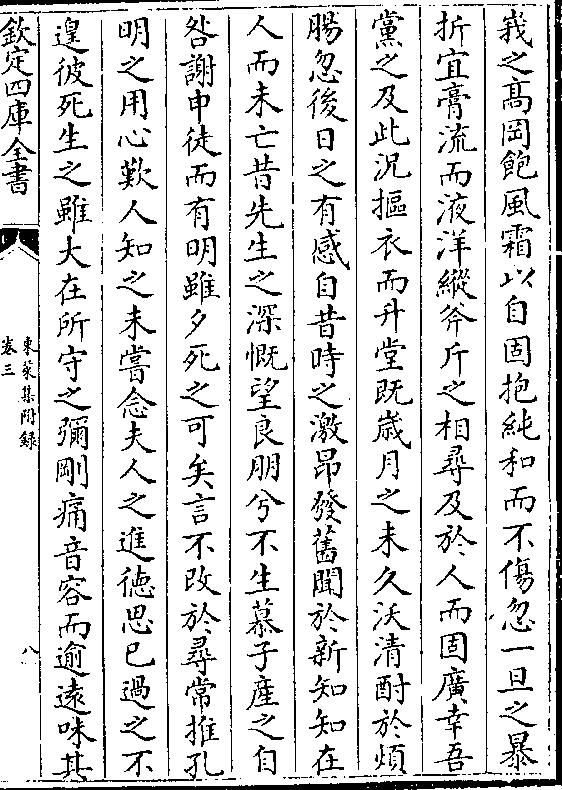 峩之髙岡飽風霜以自固抱純和而不傷忽一旦之暴
折宜膏流而液洋縱斧斤之相尋及於人而固廣幸吾
黨之及此况摳衣而升堂既嵗月之未久沃清酎於煩
腸忽後日之有感自昔時之激昂發舊聞於新知知在
人而未亡昔先生之深慨望良朋兮不生慕子產之自
咎謝申徒而有明雖夕死之可矣言不改於尋常推孔
明之用心歎人知之未嘗念夫人之進徳思已過之不
遑彼死生之雖大在所守之彌剛痛音容而逾逺咪其
欽定四庫全書
東萊集附録
卷三
八